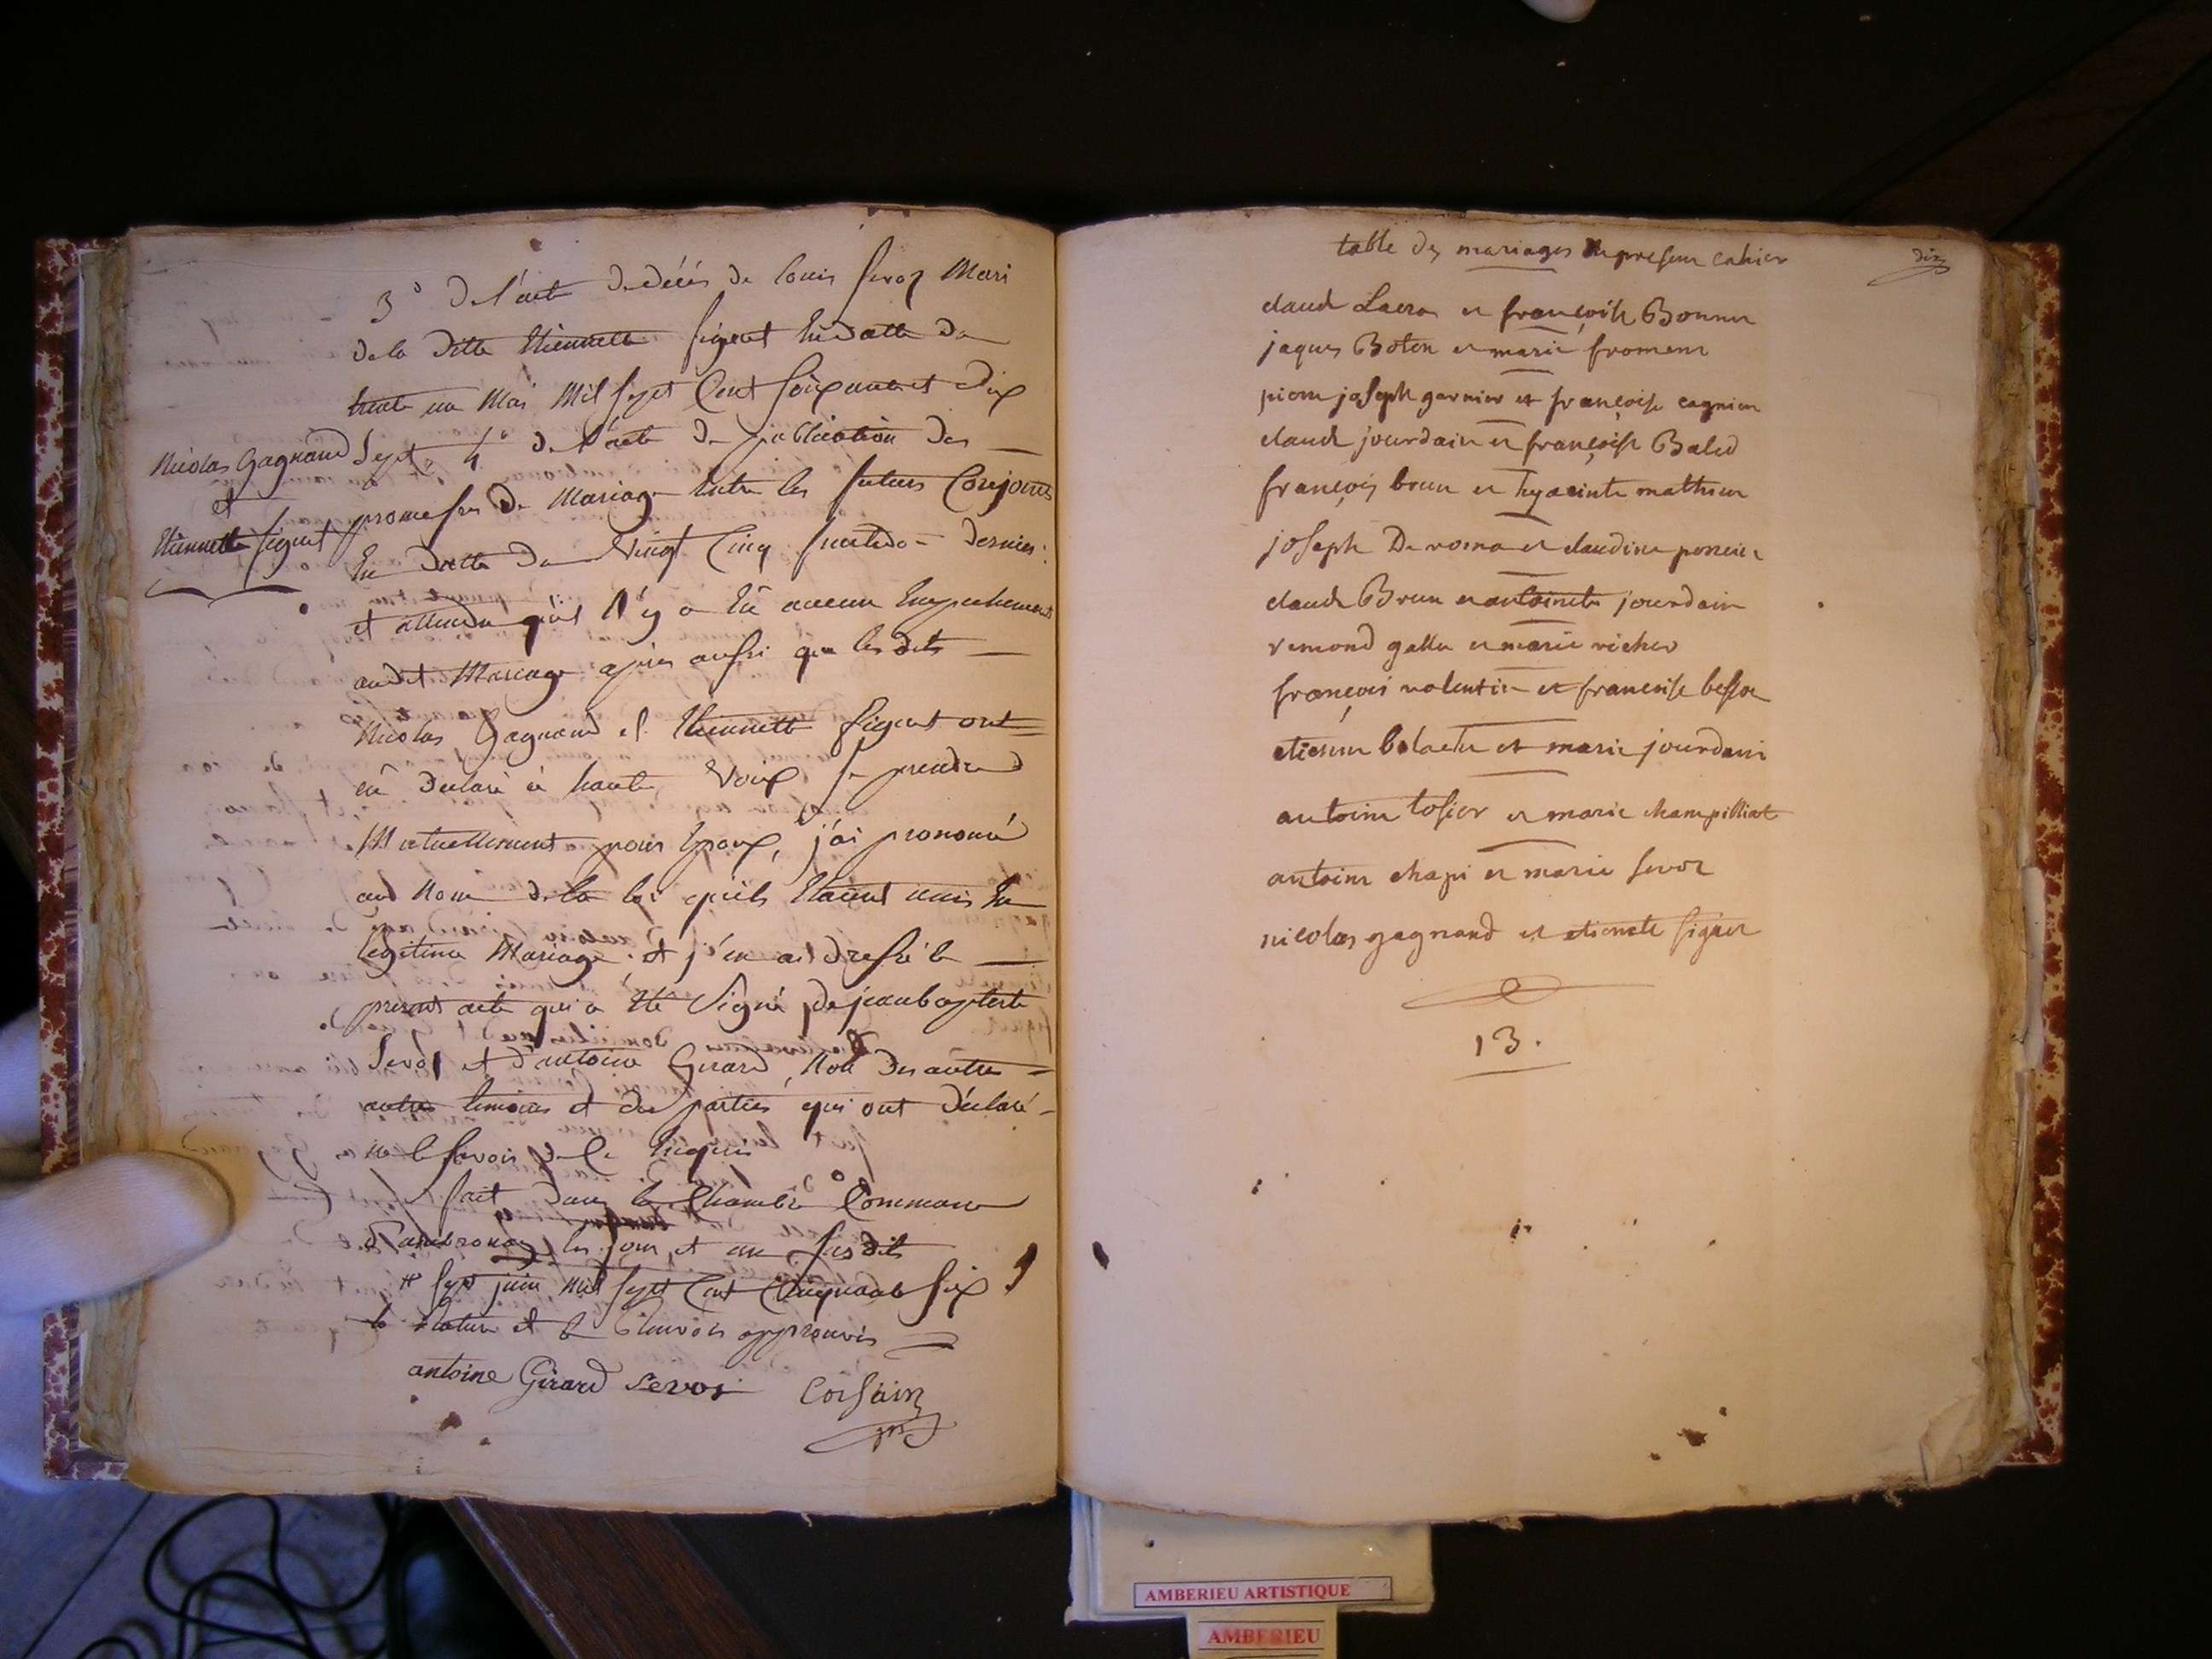 3° De l'acte de décès de louis Sevoz Mari
de la ditte Etiennette figuet En datte du
trente un Mai Mil Sept Cent Soixante et Dix
Sept 4° de l'acte de publication des
promesses de Mariage Entre les futurs Conjoints
En datte du Vingt Cinq dernier.
et attendu qu'il N'y a Eû aucun Empechement
audit Mariage après aussi que les dits
Nicolas Gagnand et Etiennette figuet ont
eû Declaré à haute Voix se prendre
Mutuellement pour Epoux, j'ai prononcé
au Nom de la loi qu'ils Etaient unis En
legitime Mariage. et j'en ai dressé le
present acte qui a Eté Signé de jean baptiste
Sevoz et d'antoine Girard, Non des autre
autres temoins et des parties qui ont déclaré
ne le savoir de ce Enquis
fait dans la Chambre Commune
d'ambronay les jour et an susdits
sept juin Mil Sept Cent Cinquante Six
la rature et le approuvés
antoine Girard Sevoz
Nicolas Gagnand
et
Etiennette figuet
table des mariages du present cahier
dix
claude Lacra et françoise Bonnet
jaques Boton et marie froment
pierre joseph garnier et françoise cagnier
claude jourdain et françoise Balad
françois brun et hyacinte mathieu
joseph De roma et claudine
claude Brun et antoinete jourdain
remond gallu et marie richer
françois valentin et francoise
etienne et marie jourdain
antoine tosier et marie champilliat
antoine chapi et marie sevoz
nicolas gagnand et etienete figuet
13.
AMBERIEU ARTISTIQUE
AMBERIEU